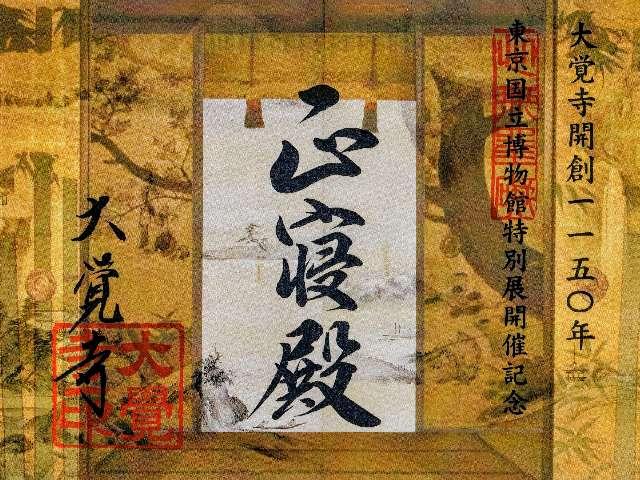 大覚寺開創一一五〇年
東京国立博物館特別展開催記念
正寝殿
大覚寺
大覺寺印